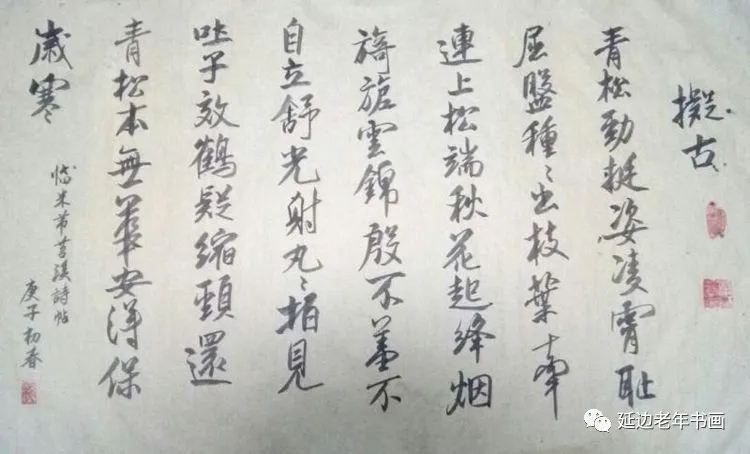 擬古
青松勁挺姿凌霄耻
屈盤種々出枝葉牽
連上松端秋花起絳烟
旖旎雲錦殷不羞不
自立舒光射丸々柏見
吐子效鶴疑縮頸還
青松本無華安得保
歲寒
臨米芾苕溪詩帖
庚子初春
延边老年书画